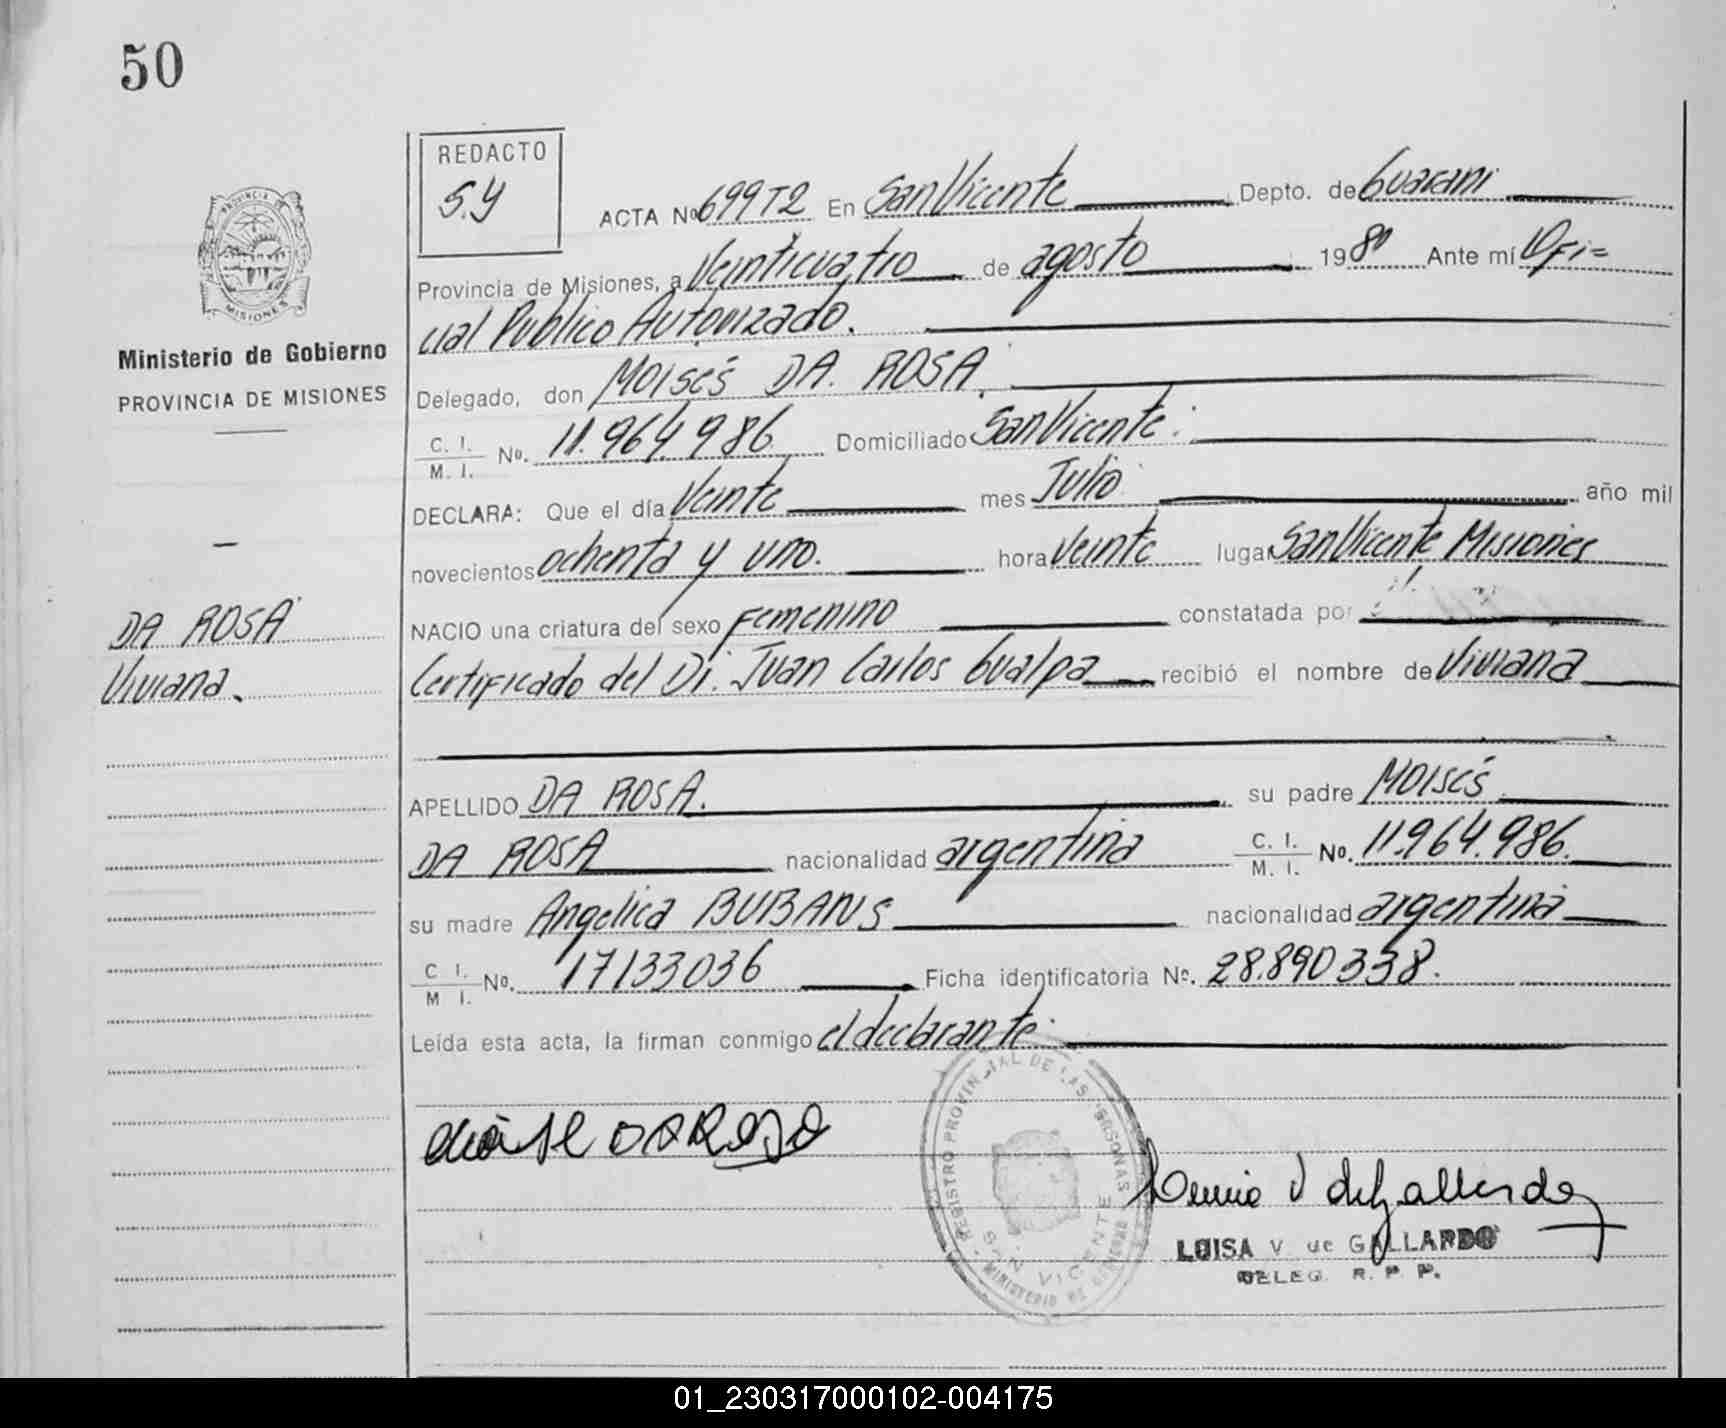 50
REDACTO
S.Y
ACTA Nº 699T2 En San Vicente Depto. de Guarani
PROVINCIA DE
MISIONES
Provincia de Misiones, a Veinticuatro de agosto 1980 Ante mí Ofi=
cial Publico Autorizado.
Ministerio de Gobierno
PROVINCIA DE MISIONES
Delegado, don MOISéS DA. ROSA.
C. I.
M. I. Nº. 11.964.986 Domiciliado San Vicente.
DECLARA: Que el día Veinte mes Julio. año mil
novecientos ochenta y uno. hora Veinte lugar San Vicente Misiones
NACIO una criatura del sexo Femenino constatada por
DA ROSA
Viviana.
Certificado del Dr. Juan Carlos Gualpa recibió el nombre de Viviana
APELLIDO DA ROSA. su padre MOISéS
DA ROSA nacionalidad argentina C. I.
M. I. No. 11.964.986.
su madre Angelica BUBANS nacionalidad argentina
C I.
M I. Nº. 17133036 Ficha identificatoria Nº. 28.890338.
Leída esta acta, la firman conmigo el declarante.
REGISTRO PROVINCIAL DE LAS PERSONAS
SAN VICENTE
MINISTERIO DE GOBIERNO
LUISA V de GALLARDO
DELEG. R. P. P.
01_230317000102-004175